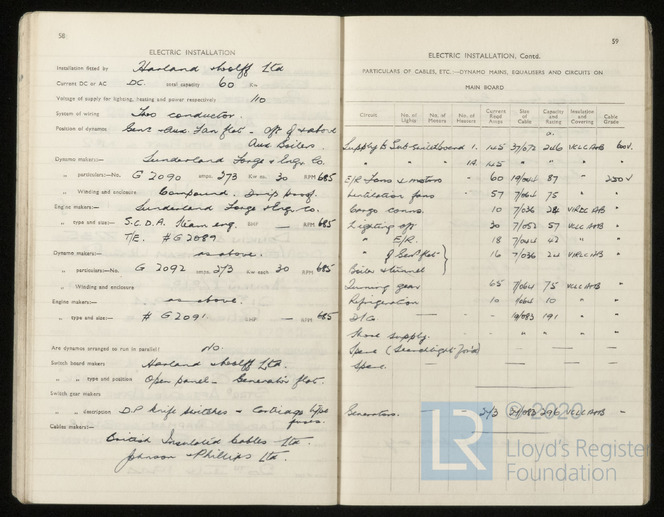 58
ELECTRIC INSTALLATION
Installation fitted by Harland & Wolff Ltd
Current DC or AC DC. total capacity 60 Kw
Voltage of supply for lighting, heating and power respectively 110
System of wiring Two conductor.
Position of dynamos Genr & Aux Fan flat - Aft of & above
Aux Boilers.
Dynamo makers:— Sunderland Forge & Engr. Co.
„ particulars:—No. G 2090 amps. 273 Kw ea. 30 RPM 685
„ Winding and enclosure Compound. Drip proof.
Engine makers:— Sunderland Forge & Engr. Co.
„ type and size:— S.C.D.A. Steam eng. BHP — RPM 685
T/E. # G 2089
Dynamo makers:— as above.
„ particulars:—No. G 2092 amps. 273 Kw each 30 RPM 685
„ Winding and enclosure
Engine makers:— as above.
„ type and size:— # G 2091. BHP — RPM 685
Are dynamos arranged to run in parallel? No.
Switch board makers Harland & Wolff Ltd.
„ „ type and position Open panel - Generator flat.
Switch gear makers
„ „ description D.P. knife switches & Cartridge type
fuses.
Cables makers:— British Insulated Cables Ltd.
Johnson & Phillips Ltd.
59
ELECTRIC INSTALLATION, Contd.
PARTICULARS OF CABLES, ETC.—DYNAMO MAINS, EQUALISERS AND CIRCUITS ON
MAIN BOARD
Circuit No. of Lights No. of Motors No. of Heaters Current Reqd Amps Size of Cable Capacity and Rating Insulation and Covering Cable Grade
Supply to Sub-switchboard 1. 145 37/072 246 VCLC AVB 600v.
„ „ „ 1A 145 „ „ „ „
E/R Fans & motors - 60 19/044 87 „ 250v
Ventilation fans 57 7/064 75 „ „
Cargo conns. 10 7/036 24 VIRLC AVB „
Lighting aft 30 7/052 57 VCLC AVB „
„ E/R. 18 7/044 42 „ „
„ Genr flat } 16 7/036 24 VIRLC AVB „
Boiler & tunnel
Turning gear 65 7/064 75 VCLC AVB „
Refrigeration 10 7/064 10 „ „
D/G - 19/083 191 „ „
Shore supply. - „ „ „ „
Spare (Searchlight ford)
Spare.
Generators. 273 37/083 276 VCLC AVB „
© 2020
LR
Lloyd's Register
Foundation